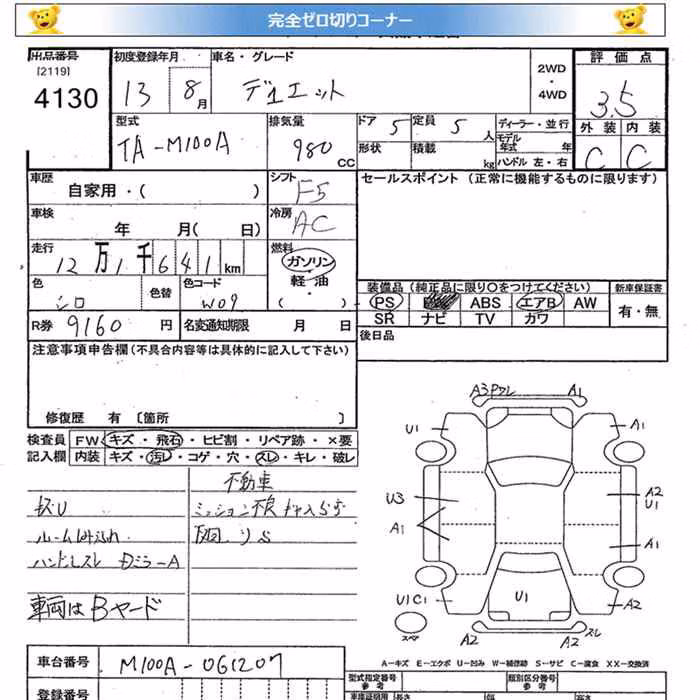 完全ゼロ切りコーナー
出品番号 初度登録年月 車名・グレード 評価点
[2119] 2WD
4130 13 8月 デュエット ・4WD 3.5
型式 排気量 ドア 5 定員 5人 ディーラー・並行 外装 内装
TA-M100A 980 CC 形状 積載 kg モデル年式 年 C C
ハンドル 左・右
車歴 シフト セールスポイント (正常に機能するものに限ります)
自家用・( ) F5
車検 冷房
年 月( 日) AC
走行 燃料
12万1千641km ガソリン
色 色替 色コード 軽油 装備品(純正品に限り○をつけてください) 新車保証書
シロ W09 ( ) PS ABS エアB AW 有・無
R券 9160円 名変通知期限 月 日 SR ナビ TV カワ
後日品
注意事項申告欄(不具合内容等は具体的に記入して下さい)
修復歴 有 〔箇所 〕
検査員 FW キズ・飛石・ヒビ割・リペア跡・×要
記入欄 内装 キズ・汚レ・コゲ・穴・スレ・キレ・破レ
不動車
ミッション不良
ハンドルスレ ミラーA
車両はBヤード
A3 ワレ A1
U1 A1
U3 A2
U1
A1 A1
U1C1 U1 A2
スペア A2 A2 スレ
A-キズ E-エクボ U-凹み W-補修跡 S-サビ C-腐食 XX-交換済
車台番号 M100A-061207 型式指定番号 類別区分番号
登録番号 車庫証明用 長さ 幅 高さ